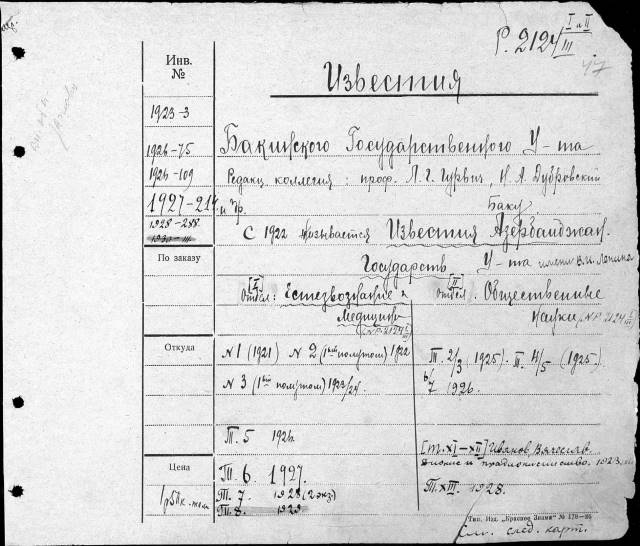 Р. 2124 I и II
III
47
Инв.
№
Известия
1923-3
1926-75
Бакинского Государственного У-та
1926-109
Редакц. коллегия: проф. Л. Г. Гурвич, Н. А. Дубровский
1927-214
и др.
Баку
1928-288
С 1922 называется Известия Азербайджан.
По заказу
Государств У-та имени В. И. Ленина
[I] Отдел: Естествознание и
медицина
[II] Отдел. Общественные
науки
Откуда
N 1 (1921) N 2 (1ый полутом) 1922
N 3 (1ый полутом) 1923/24.
Т. 2/3 (1925). Т. 4/5 (1925).
6/7 1926.
Т. 5 1926
Цена
Т. 6. 1927.
Т. 7. 1928 (2 экз)
Т. 8. 1929
[т. XI-XII] Иванов Вячеслав
Дионис и прадионисийство. 1923
Т. XIII. 1928.
Тип. Изд. „Красное Знамя" № 178-
См. след. карт.